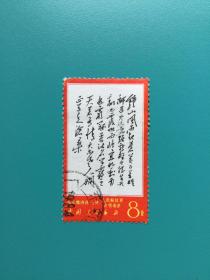 钟山风雨起苍黄百万雄
师过大江虎踞龙盘今胜昔天
翻地覆慨而慷宜将剩勇
追穷寇不可沽名学霸王
天若有情天亦老人间
正道是沧桑
中国人民邮政
8分